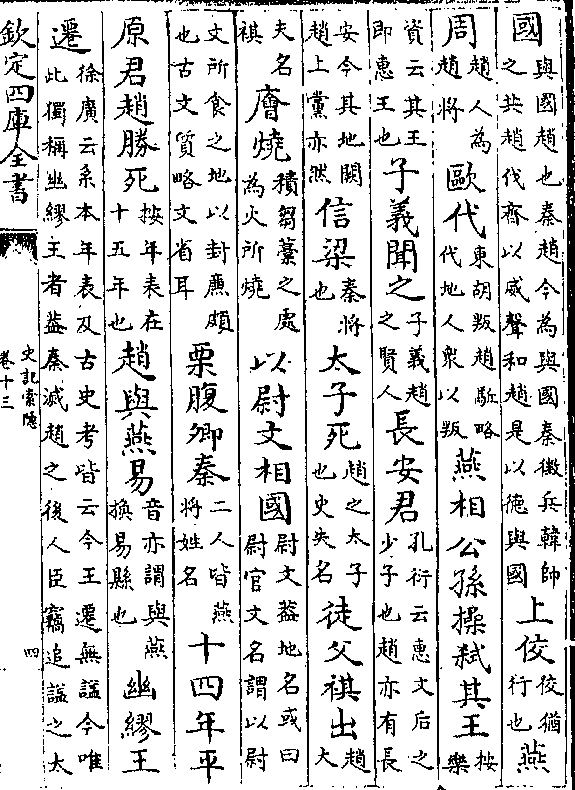 國與國趙也秦趙今為與國秦徵兵韓帥之共趙伐齊以威聲和趙是以德與國上佼佼猶行也燕
周趙人為趙將歐代東胡叛趙駈略代地人衆以叛燕相公孫操弒其王按樂
資云其王即惠王也子義聞之子義趙之賢人長安君孔衍云惠文后之少子也趙亦有長
安今其地闕趙上黨亦然信梁秦將也太子死趙之太子也史失名徒父祺出趙大
夫名祺廥燒積芻藁之處為火所燒以尉文相國尉文葢地名或曰尉官文名謂以尉
文所食之地以封亷頗也古文質略文省耳栗腹卿秦二人皆燕將姓名十四年平
原君趙勝死按年表在十五年也趙與燕易音亦謂與燕換易縣也幽繆王
遷徐廣云系本年表及古史考皆云今王遷無謚今唯此獨稱幽繆王者葢秦滅趙之後人臣竊追謚之太
欽定四庫全書
史記索隱
卷十三
四